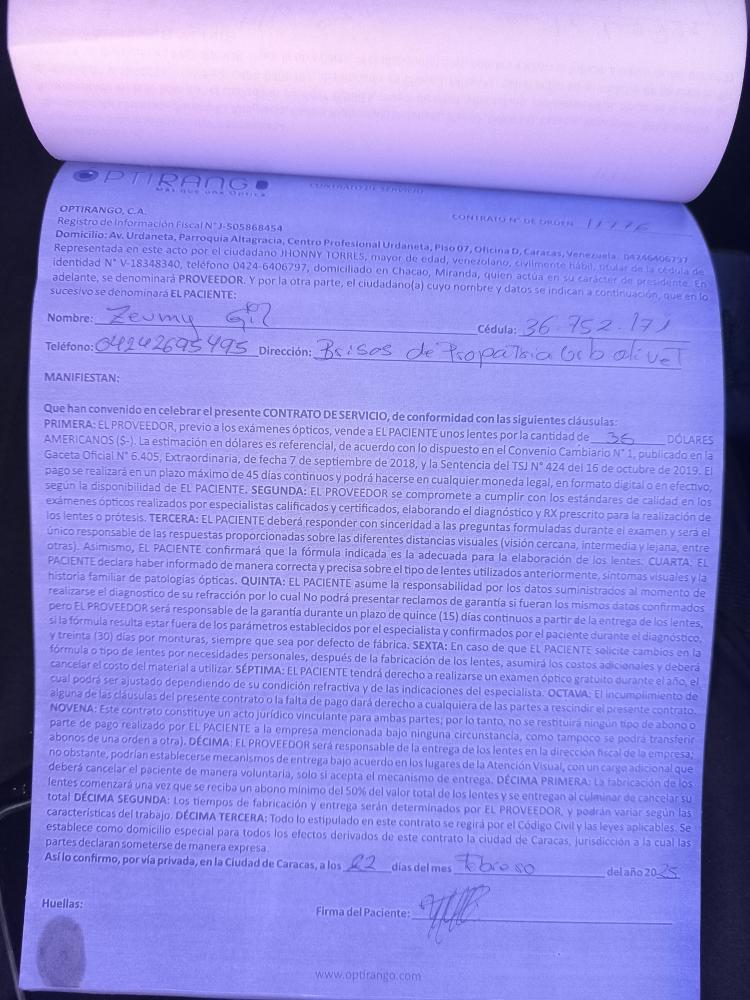 OPTIRANGO
Más que una Óptica
CONTRATO DE SERVICIO
OPTIRANGO, C.A.
CONTRATO N° DE ORDEN 11776
Registro de Información Fiscal N°J-505868454
Domicilio: Av. Urdaneta, Parroquia Altagracia, Centro Profesional Urdaneta, Piso 07, Oficina D, Caracas, Venezuela. 04246406797
Representada en este acto por el ciudadano JHONNY TORRES, mayor de edad, venezolano, civilmente hábil, titular de la cédula de
identidad N° V-18348340, teléfono 0424-6406797, domiciliado en Chacao, Miranda, quien actúa en su carácter de presidente. En
adelante, se denominará PROVEEDOR. Y por la otra parte, el ciudadano(a) cuyo nombre y datos se indican a continuación, que en lo
sucesivo se denominará EL PACIENTE:
Nombre: Zeumy Gil Cédula: 36.752.171
Teléfono: 04242695495 Dirección: Brisas de Propatria
MANIFIESTAN:
Que han convenido en celebrar el presente CONTRATO DE SERVICIO, de conformidad con las siguientes cláusulas:
PRIMERA: EL PROVEEDOR, previo a los exámenes ópticos, vende a EL PACIENTE unos lentes por la cantidad de 36 DÓLARES
AMERICANOS ($-). La estimación en dólares es referencial, de acuerdo con lo dispuesto en el Convenio Cambiario N° 1, publicado en la
Gaceta Oficial N° 6.405, Extraordinaria, de fecha 7 de septiembre de 2018, y la Sentencia del TSJ N° 424 del 16 de octubre de 2019. El
pago se realizará en un plazo máximo de 45 días continuos y podrá hacerse en cualquier moneda legal, en formato digital o en efectivo,
según la disponibilidad de EL PACIENTE. SEGUNDA: EL PROVEEDOR se compromete a cumplir con los estándares de calidad en los
exámenes ópticos realizados por especialistas calificados y certificados, elaborando el diagnóstico y RX prescrito para la realización de
los lentes o prótesis. TERCERA: EL PACIENTE deberá responder con sinceridad a las preguntas formuladas durante el examen y será el
único responsable de las respuestas proporcionadas sobre las diferentes distancias visuales (visión cercana, intermedia y lejana, entre
otras). Asimismo, EL PACIENTE confirmará que la fórmula indicada es la adecuada para la elaboración de los lentes. CUARTA: EL
PACIENTE declara haber informado de manera correcta y precisa sobre el tipo de lentes utilizados anteriormente, síntomas visuales y la
historia familiar de patologías ópticas. QUINTA: EL PACIENTE asume la responsabilidad por los datos suministrados al momento de
realizarse el diagnostico de su refracción por lo cual No podrá presentar reclamos de garantía si fueran los mismos datos confirmados
pero EL PROVEEDOR será responsable de la garantía durante un plazo de quince (15) días continuos a partir de la entrega de los lentes,
si la fórmula resulta estar fuera de los parámetros establecidos por el especialista y confirmados por el paciente durante el diagnóstico,
y treinta (30) días por monturas, siempre que sea por defecto de fábrica. SEXTA: En caso de que EL PACIENTE solicite cambios en la
fórmula o tipo de lentes por necesidades personales, después de la fabricación de los lentes, asumirá los costos adicionales y deberá
cancelar el costo del material a utilizar. SÉPTIMA: EL PACIENTE tendrá derecho a realizarse un examen óptico gratuito durante el año, el
cual podrá ser ajustado dependiendo de su condición refractiva y de las indicaciones del especialista. OCTAVA: El incumplimiento de
alguna de las cláusulas del presente contrato o la falta de pago dará derecho a cualquiera de las partes a rescindir el presente contrato.
NOVENA: Este contrato constituye un acto jurídico vinculante para ambas partes; por lo tanto, no se restituirá ningún tipo de abono o
parte de pago realizado por EL PACIENTE a la empresa mencionada bajo ninguna circunstancia, como tampoco se podrá transferir
abonos de una orden a otra). DÉCIMA: EL PROVEEDOR será responsable de la entrega de los lentes en la dirección fiscal de la empresa;
no obstante, podrían establecerse mecanismos de entrega bajo acuerdo en los lugares de la Atención Visual, con un cargo adicional que
deberá cancelar el paciente de manera voluntaria, solo si acepta el mecanismo de entrega. DÉCIMA PRIMERA: La fabricación de los
lentes comenzará una vez que se reciba un abono mínimo del 50% del valor total de los lentes y se entregan al culminar de cancelar su
total DÉCIMA SEGUNDA: Los tiempos de fabricación y entrega serán determinados por EL PROVEEDOR, y podrán variar según las
características del trabajo. DÉCIMA TERCERA: Todo lo estipulado en este contrato se regirá por el Código Civil y las leyes aplicables. Se
establece como domicilio especial para todos los efectos derivados de este contrato la ciudad de Caracas, jurisdicción a la cual las
partes declaran someterse de manera expresa.
Así lo confirmo, por vía privada, en la Ciudad de Caracas, a los 22 días del mes Febrero del año 2025
Huellas:
Firma del Paciente:
www.optirango.com